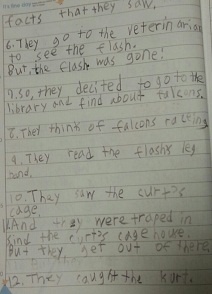 facts that they saw.
6. They go to the veterinarian
to see the flash.
But, the flash was gone!
7. So, they decited to go to the
library and find about falcons.
8. They think of falcons racting
9. They read the flash's leg
band.
10. They saw the curt?s
cage.
11. And they were traped in
kind the curt?s cage house.
But they get out of there
12. They caught the kurt.